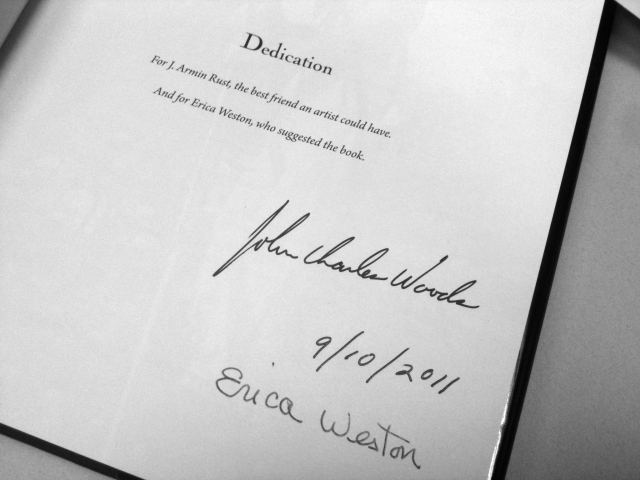 Dedication
For J. Armin Rust, the best friend an artist could have.
And for Erica Weston, who suggested the book.
John Charles Woods
9/10/2011
Erica Weston